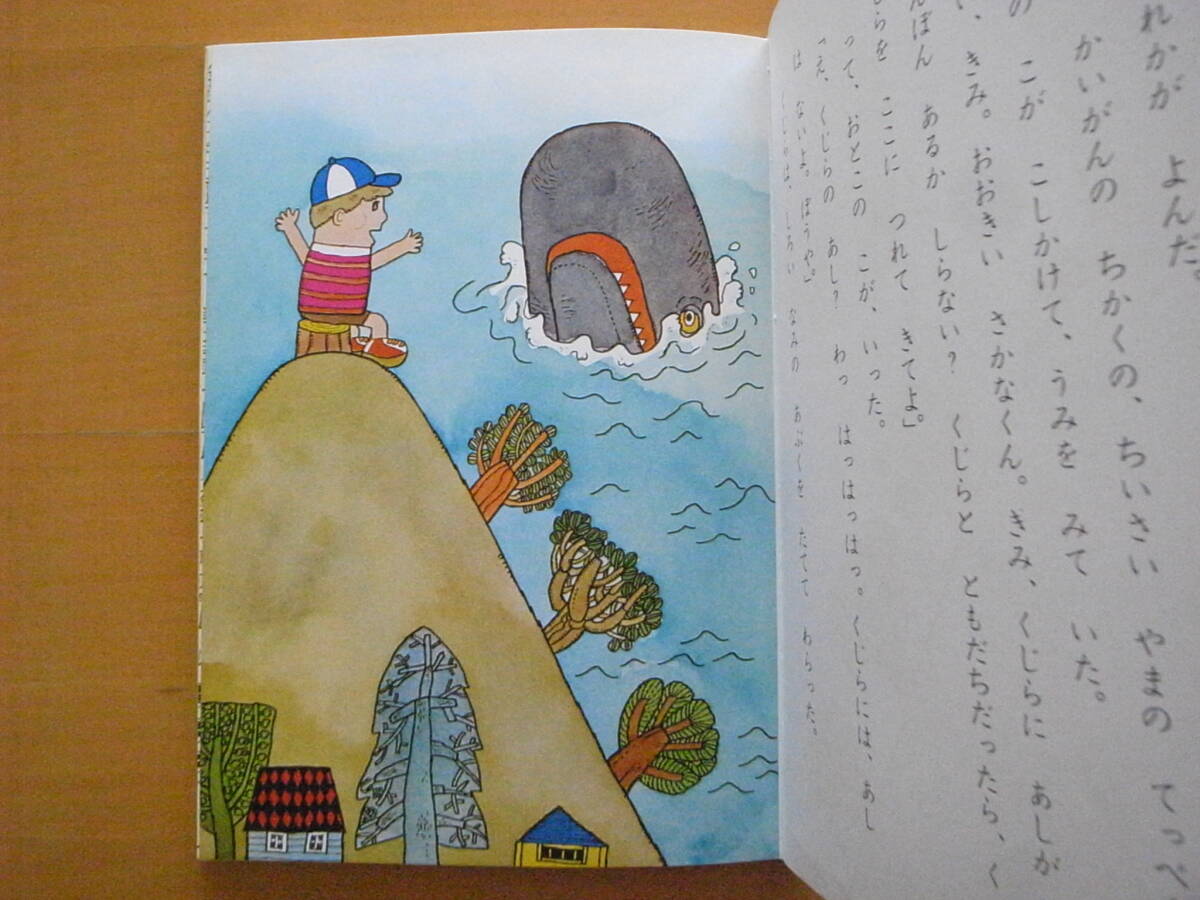 れかが よんだ。
かいがんの ちかくの、ちいさい やまの てっぺ
の こが こしかけて、うみを みて いた。
い、きみ。おおきい さかなくん。きみ、くじらに あしが
んぼん あるか しらない? くじらと ともだちだったら、く
じらを ここに つれて きてよ。」
って、おとこの こが、いった。
「え、くじらの あし? わっ はっはっはっ。くじらには、あし
は ないよ。ぼうや。」
くじらは、しろい なみの あぶくを たてて わらった。